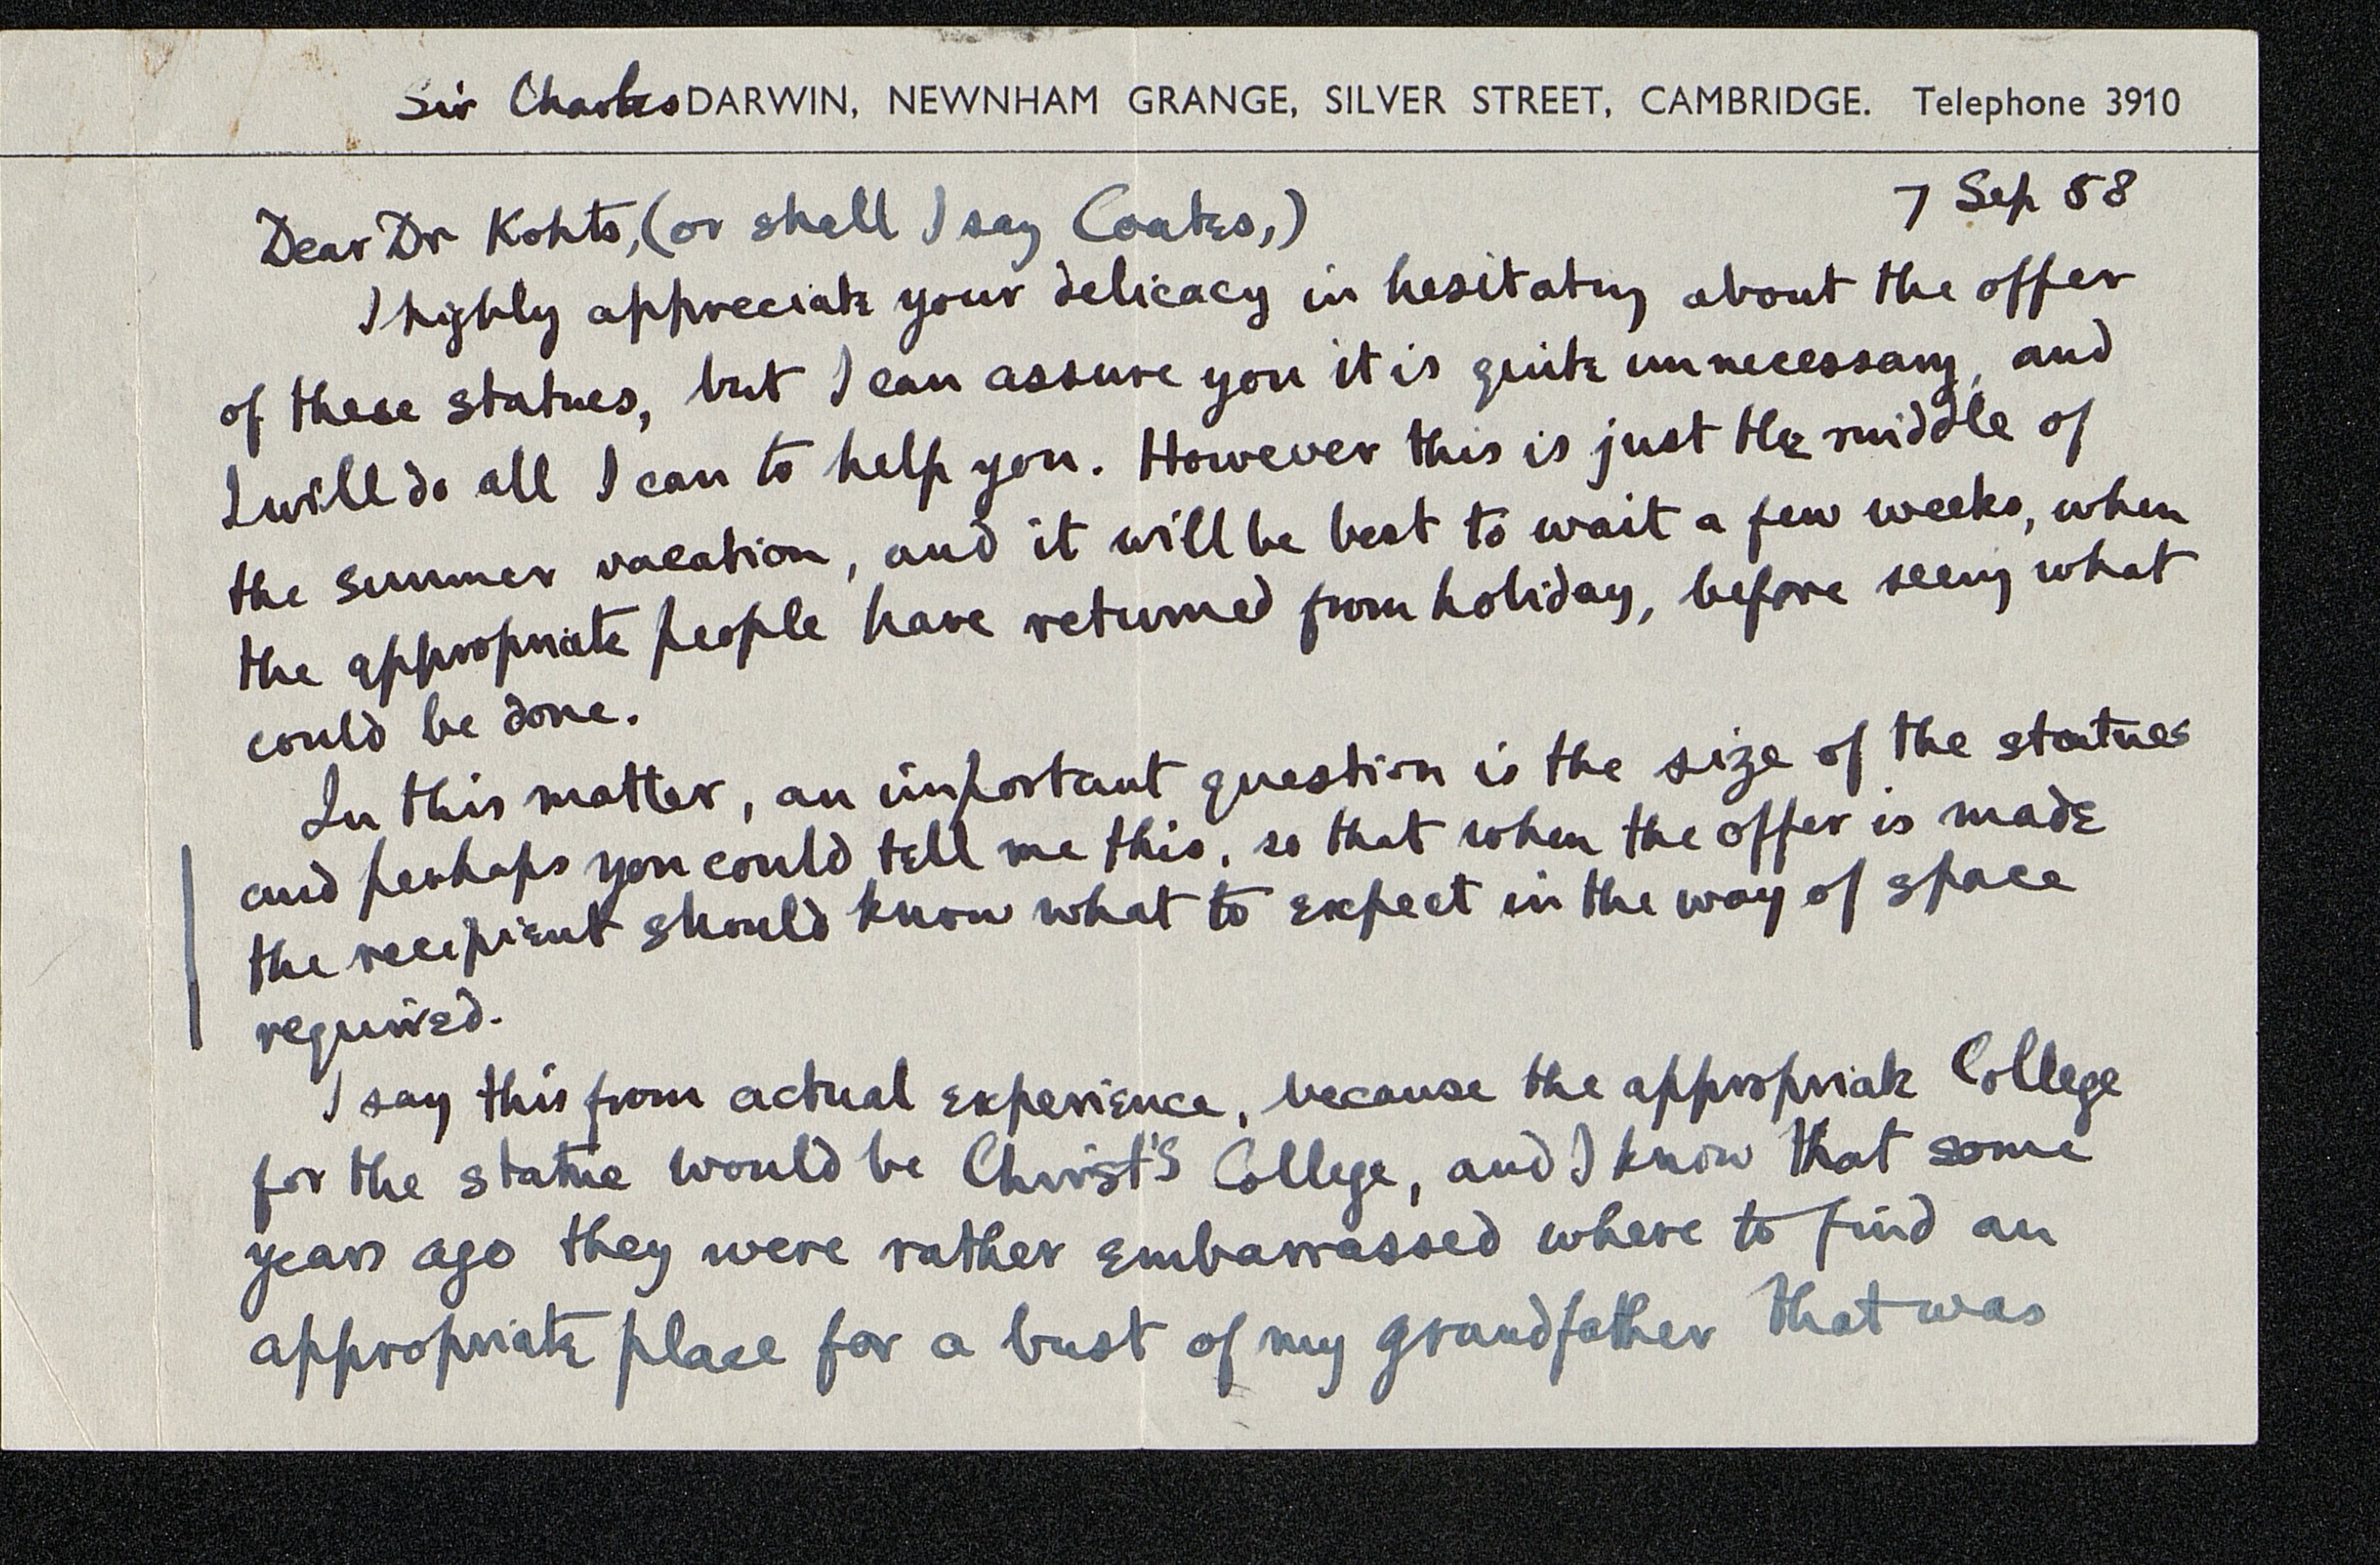 Sir Charles DARWIN, NEWNHAM GRANGE, SILVER STREET, CAMBRIDGE. Telephone 3910
7 Sep 58
Dear Dr Kohts, (or shall I say Coates,)
I highly appreciate your delicacy in hesitating about the offer
of these statues, but I can assure you it is quite unnecessary, and
I will do all I can to help you. However this is just the middle of
the summer vacation, and it will be best to wait a few weeks, when
the appropriate people have returned from holiday, before seeing what
could be done.
In this matter, an important question is the size of the statues
and perhaps you could tell me this, so that when the offer is made
the recipient should know what to expect in the way of space
required.
I say this from actual experience, because the appropriate College
for the statue would be Christ's College, and I know that some
years ago they were rather embarrassed where to find an
appropriate place for a bust of my grandfather that was